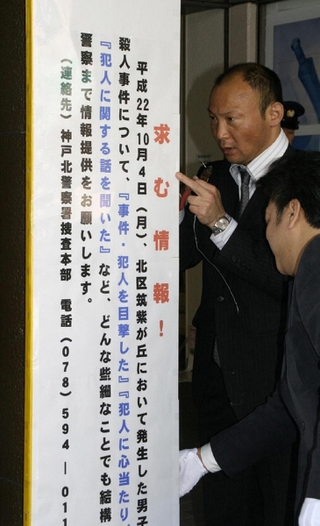 求む情報！
平成22年10月4日（月）、北区筑紫が丘において発生した男子
殺人事件について、『事件・犯人を目撃した』『犯人に心当たり
『犯人に関する話を聞いた』など、どんな些細なことでも結構
警察まで情報提供をお願いします。
（連絡先）神戸北警察署捜査本部　電話（078）594―011